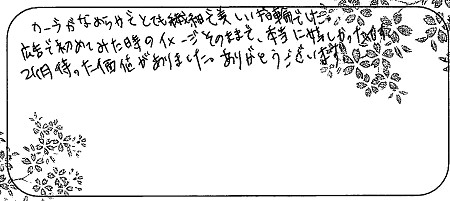 カーブがなめらかでとても繊細で美しい指輪でした。
広告で初めてみた時のイメージそのままで、本当に嬉しかったです。
2ヶ月待った価値がありました。ありがとうございます!